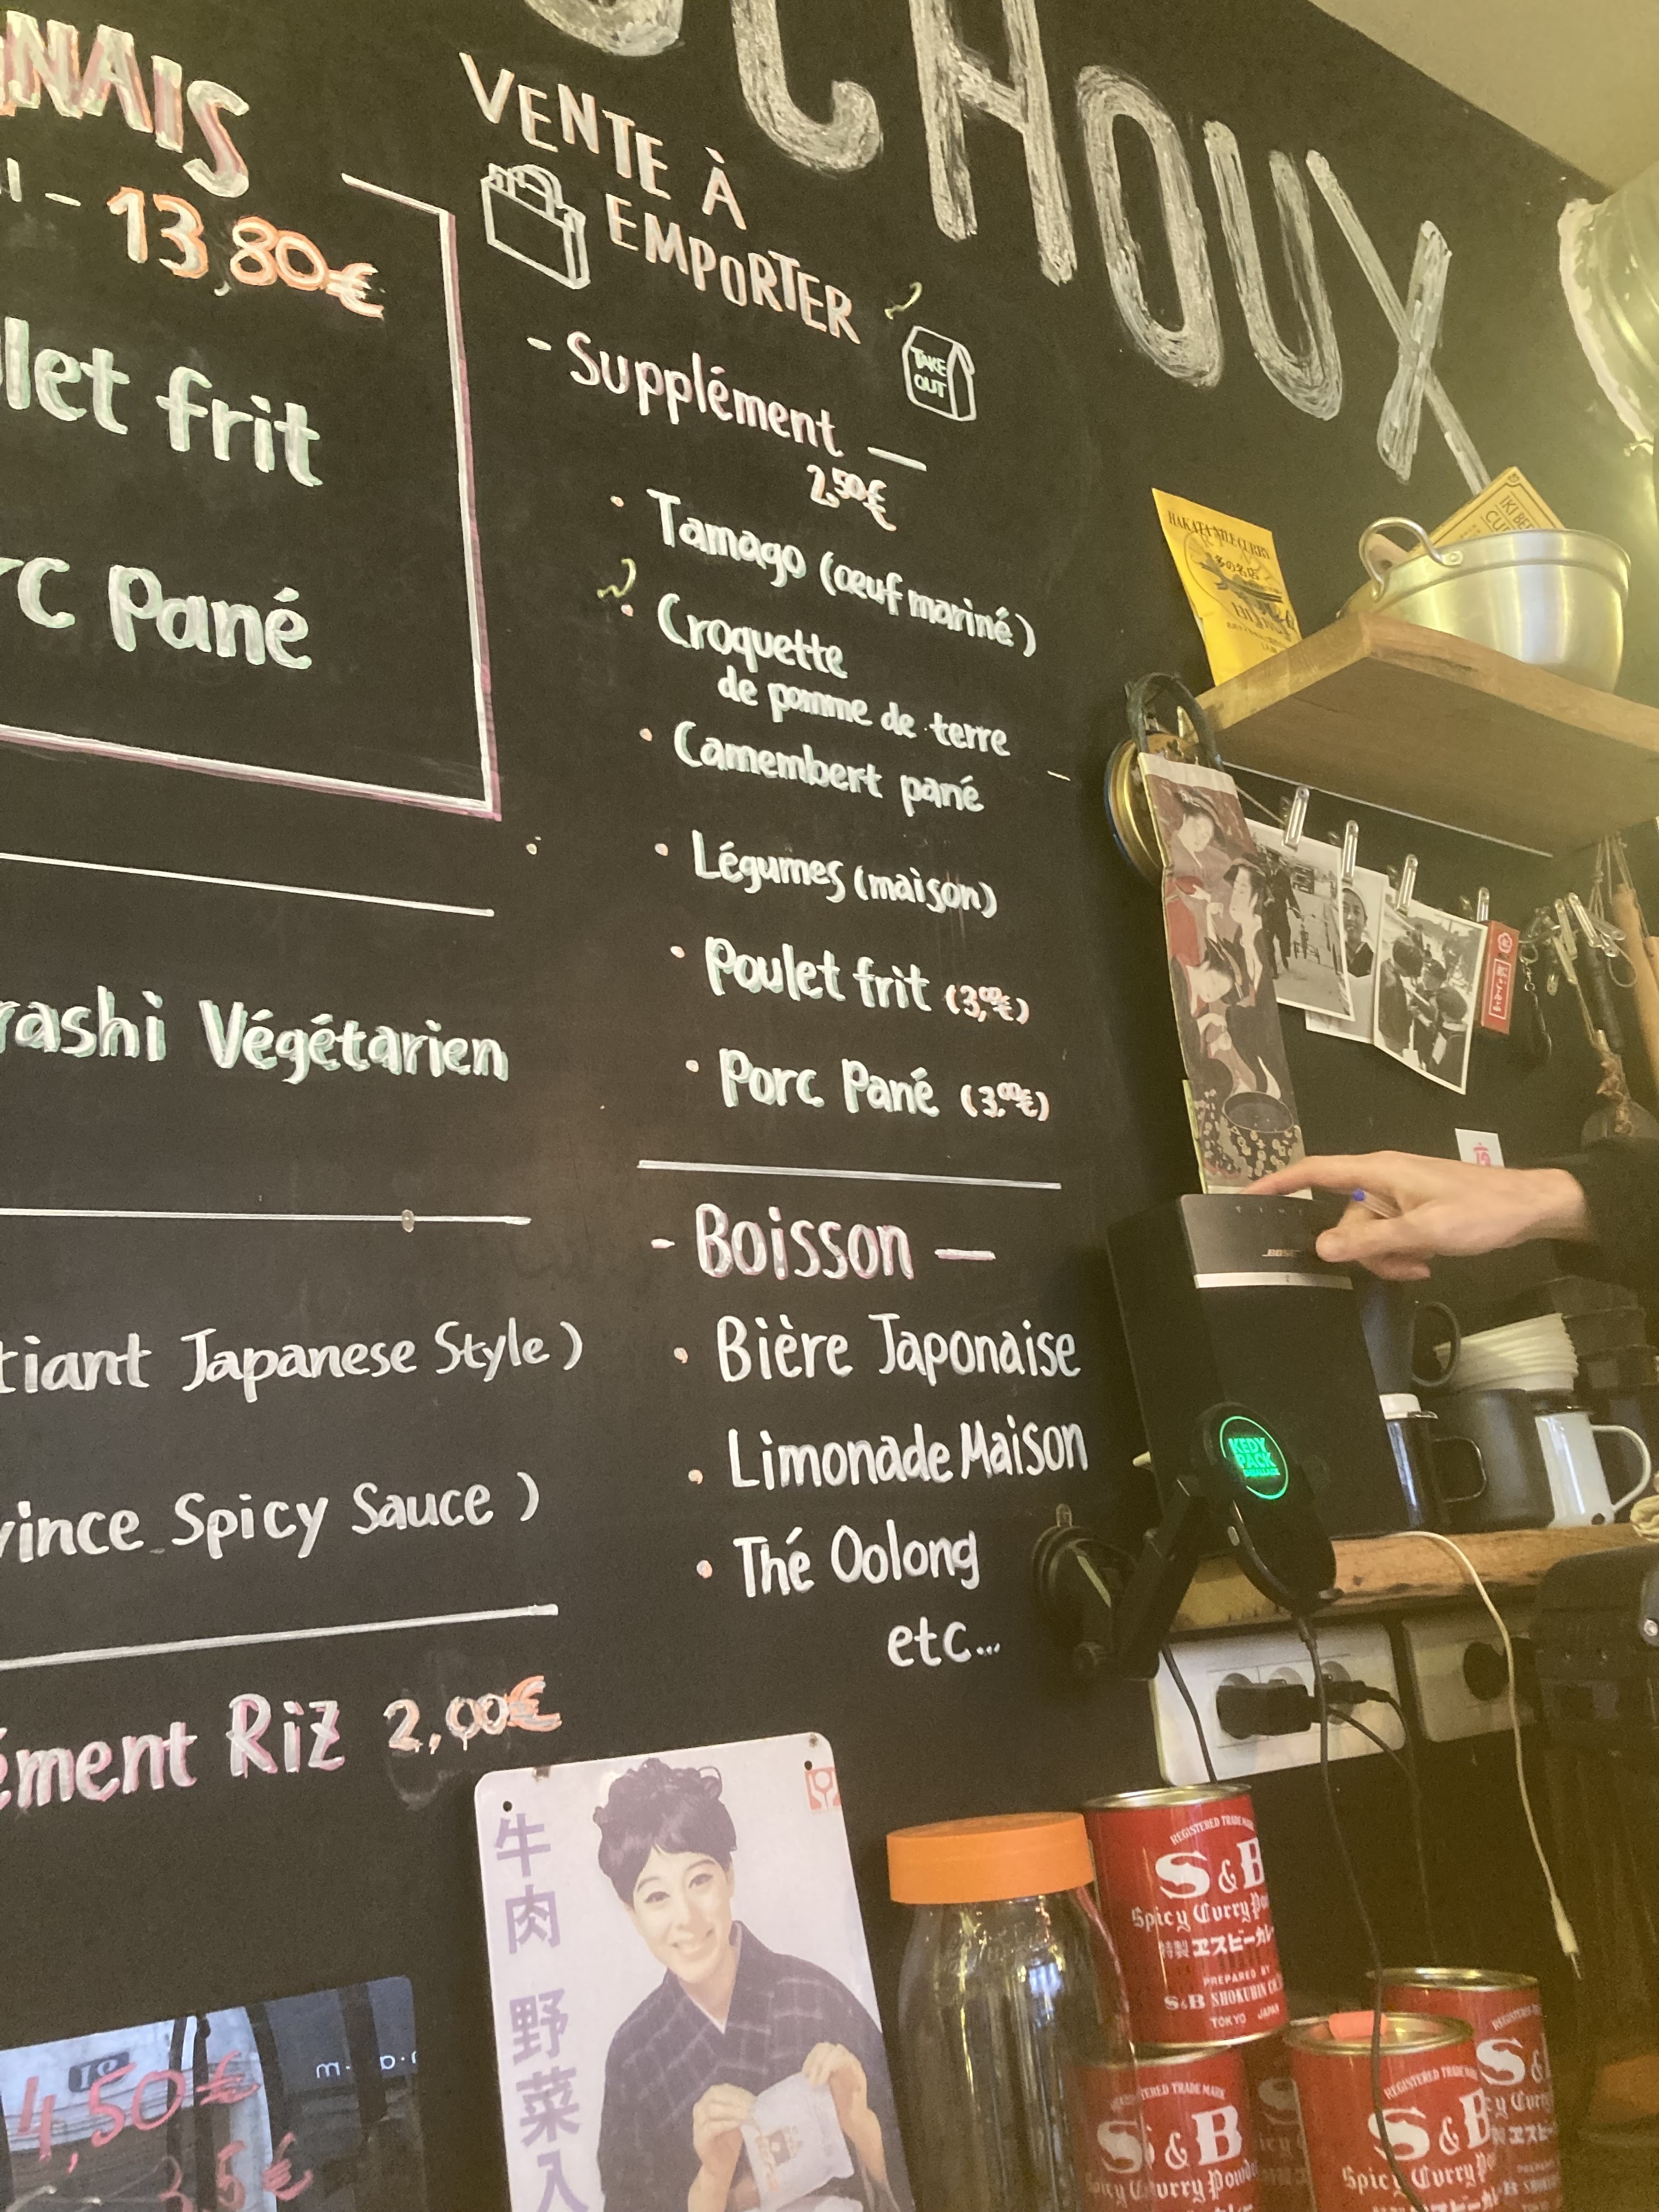 CHOUX
13,80€
frit
Pané
Végétarien
Japanese Style )
Spicy Sauce )
Riz 2,00€
VENTE À
EMPORTER
TAKE
OUT
- Supplément —
2,50€
· Tamago (œuf mariné)
· Croquette
de pomme de terre
· Camembert pané
· Légumes (maison)
· Poulet frit (3,00€)
· Porc Pané (3,00€)
- Boisson —
· Bière Japonaise
· Limonade Maison
· Thé Oolong
etc...
HAKATA NILE CURRY
BOSE
KEDY
PACK
牛肉 野菜入
4,50€
REGISTERED TRADE MARK
S&B
Spicy Curry
特製 ヱスビーカレー
PREPARED BY
S&B SHOKUHIN CO.
TOKYO JAPAN
REGISTERED TRADE MARK
S&B
Spicy Curry Powder
REGISTERED TRADE MARK
S&B
Spicy Curry